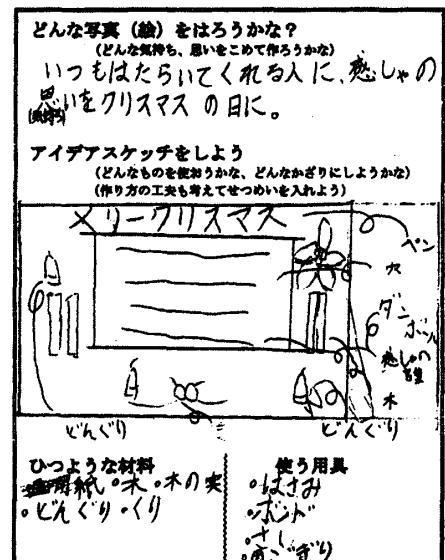 どんな写真（絵）をはろうかな？
（どんな気持ち、思いをこめて作ろうかな）
いつもはたらいてくれる人に、感しゃの
思いをクリスマスの日に。
アイデアスケッチをしよう
（どんなものを使おうかな、どんなかざりにしようかな）
（作り方の工夫も考えてせつめいを入れよう）
メリークリスマス
ペン
穴
ダンボール
感しゃの
木
どんぐり
どんぐり
ひつような材料
用紙・木・木の実
・どんぐり・くり
使う用具
・はさみ
・ボンド